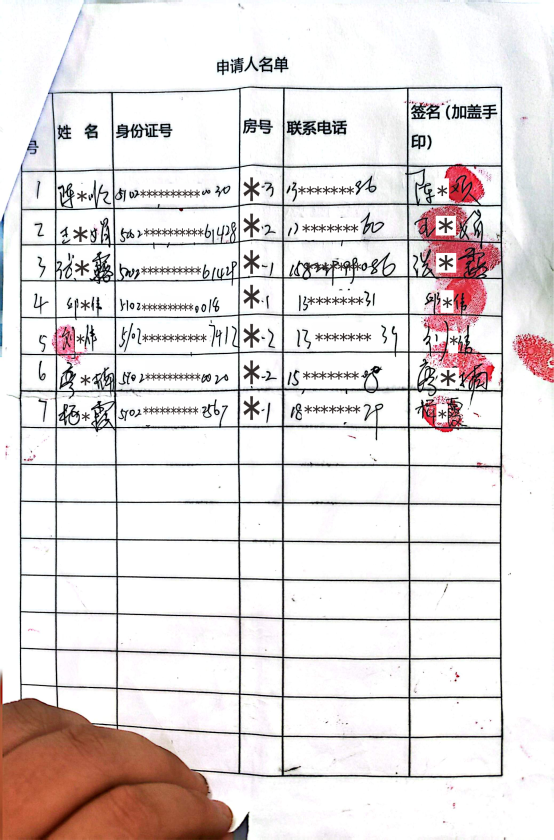 申请人名单
号 姓 名 身份证号 房号 联系电话 签名（加盖手印）
1 陈* 5102**********0030 *-3 13*******86 陈*
2 王*娟 5002**********61428 *-2 13*******60 王*娟
3 张*露 5002**********61429 *-1 张*露
4 邱*伟 5102**********0018 *-1 13*******31 邱*伟
5 刘*伟 5102**********7412 *-2 13******* 39 刘*伟
6 廖*楠 5102**********0020 *-2 15******* 廖*楠
7 杨*露 5102**********2567 *-1 18*******29 杨*露